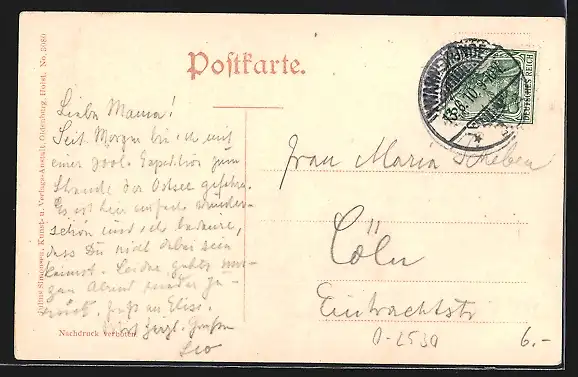 Postkarte.
WARNEMÜNDE
13.8.10
DEUTSCHES REICH
Liebe Mama!
Seit Morgen bin ich mit
einer zool. Expedition zum
Strande der Ostsee gefahren.
Es ist hier einfach wunder-
schön und ich bedaure,
dass Du nicht dabei sein
kannst. Leider gehts mor-
gen Abend wieder zu-
rück. Gruß an Elise.
herzl. Grüßen
Leo
Frau Maria Scheben
Cöln
Eintrachtstr
0-2530
6.-
Nachdruck verboten.
Julius Simonsen, Kunst- u. Verlags-Anstalt, Oldenburg, Holst. No. 3080